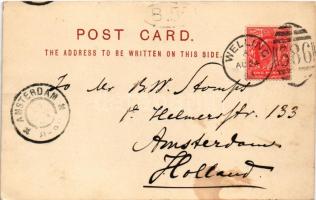 POST CARD.
THE ADDRESS TO BE WRITTEN ON THIS SIDE.
WELLING
AU
86
AMSTERDAM
To Mr B.W. Stomps
1e Helmersstr. 133
Amsterdam
Holland.